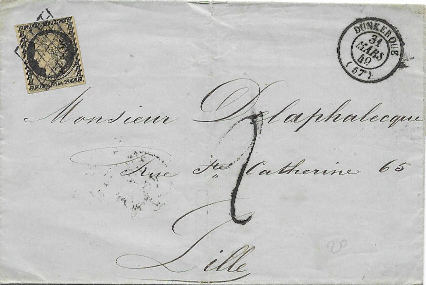 DUNKERQUE
31
MARS
49
(57)
Monsieur Delaphalecque
Rue Ste Catherine 65
2
Lille